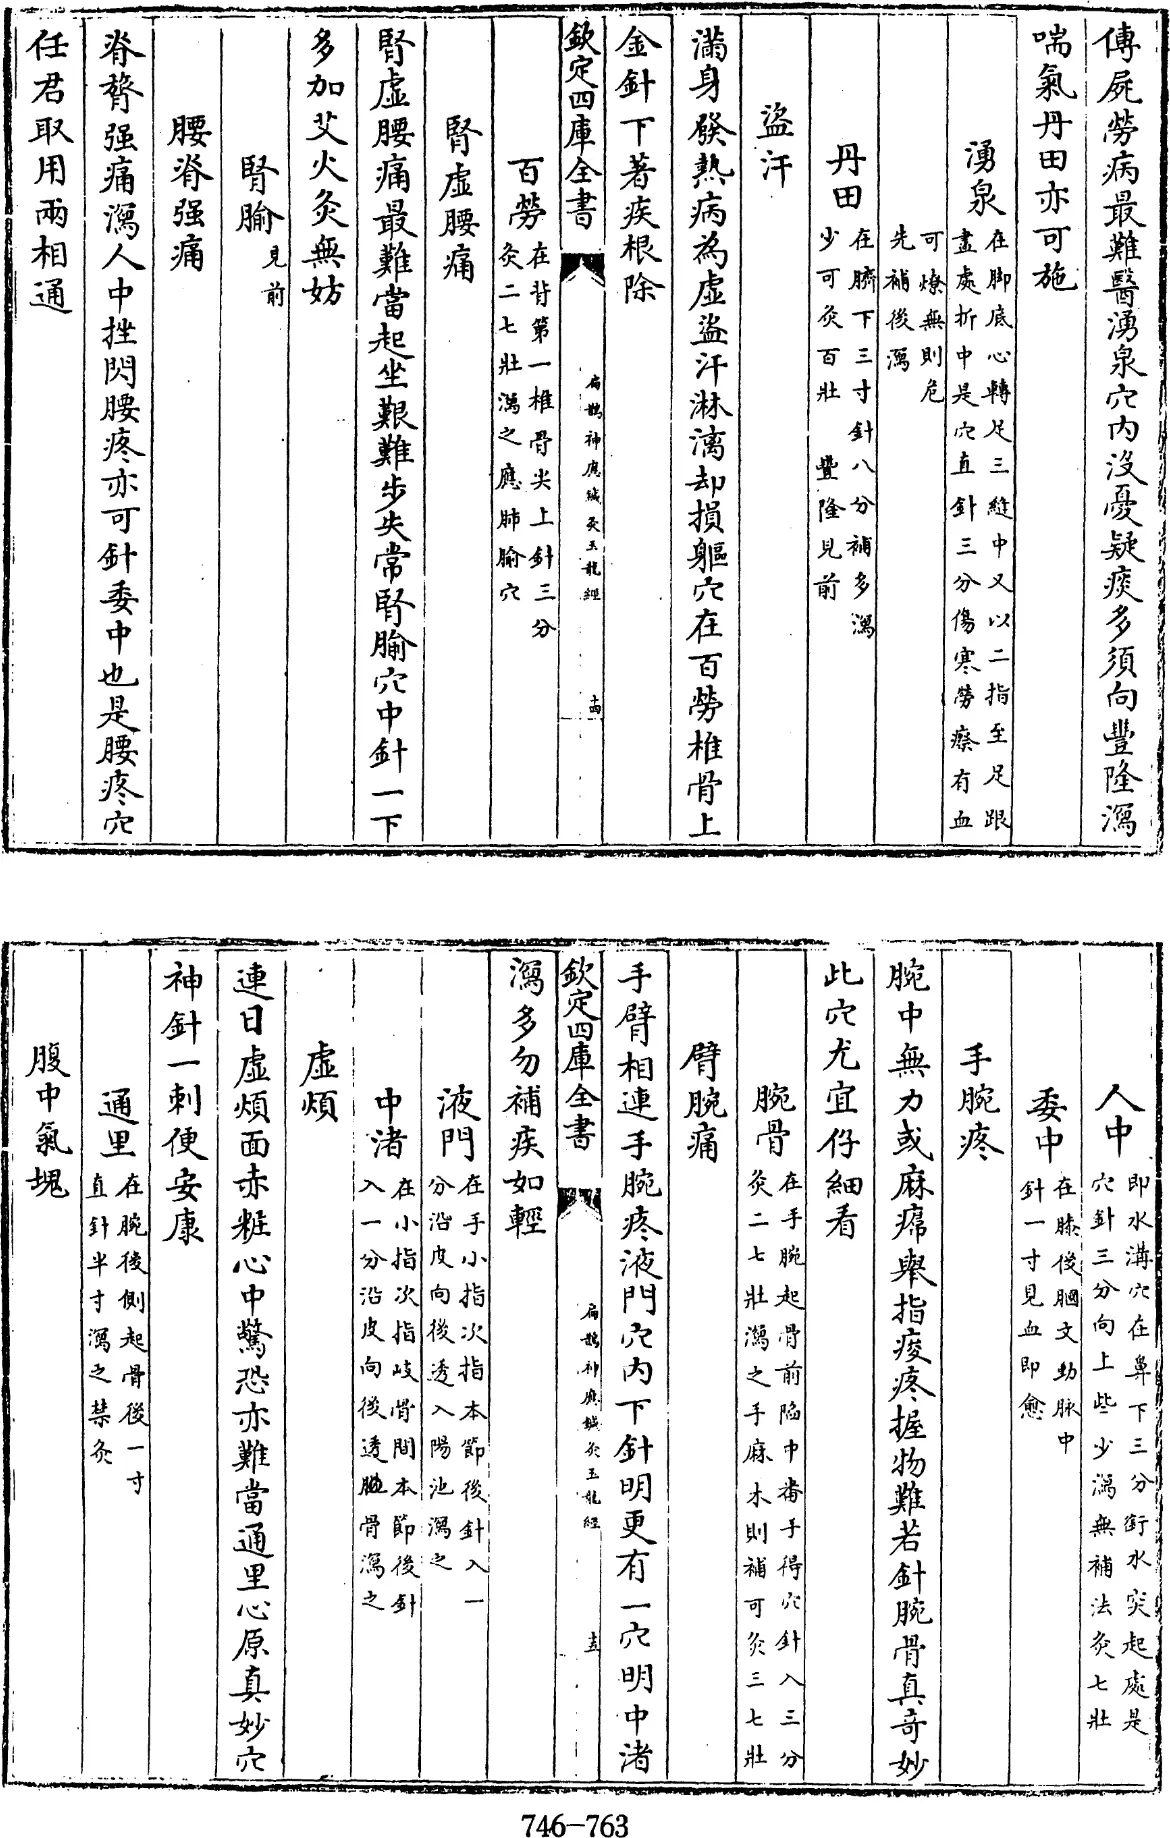 傳屍勞病最難醫湧泉穴內沒憂疑痰多須向豐隆瀉
喘氣丹田亦可施
湧泉
在脚底心轉足三縫中又以二指至足跟
盡處折中是穴直針三分傷寒勞瘵有血
可燎無則危
先補後瀉
丹田
在臍下三寸針八分補多瀉
少可灸百壯 豐隆見前
盜汗
滿身發熱病為虛盜汗淋漓却損軀穴在百勞椎骨上
金針下著疾根除
欽定四庫全書
扁鵲神應鍼灸玉龍經
十四
百勞
在背第一椎骨尖上針三分
灸二七壯瀉之應肺腧穴
腎虛腰痛
腎虛腰痛最難當起坐艱難步失常腎腧穴中針一下
多加艾火灸無妨
腎腧
見前
腰脊强痛
脊膂强痛瀉人中挫閃腰疼亦可針委中也是腰疼穴
任君取用兩相通
人中
即水溝穴在鼻下三分銜水突起處是
穴針三分向上些少瀉無補法灸七壯
委中
在膝後膕文動脉中
針一寸見血即愈
手腕疼
腕中無力或麻痹舉指痠疼握物難若針腕骨真奇妙
此穴尤宜仔細看
腕骨
在手腕起骨前陷中番手得穴針入三分
灸二七壯瀉之手麻木則補可灸三七壯
臂腕痛
手臂相連手腕疼液門穴內下針明更有一穴明中渚
欽定四庫全書
扁鵲神應鍼灸玉龍經
十五
瀉多勿補疾如輕
液門
在手小指次指本節後針入一
分沿皮向後透入陽池瀉之
中渚
在小指次指岐骨間本節後針
入一分沿皮向後透腕骨瀉之
虛煩
連日虛煩面赤粧心中驚恐亦難當通里心原真妙穴
神針一刺便安康
通里
在腕後側起骨後一寸
直針半寸瀉之禁灸
腹中氣塊
746-763